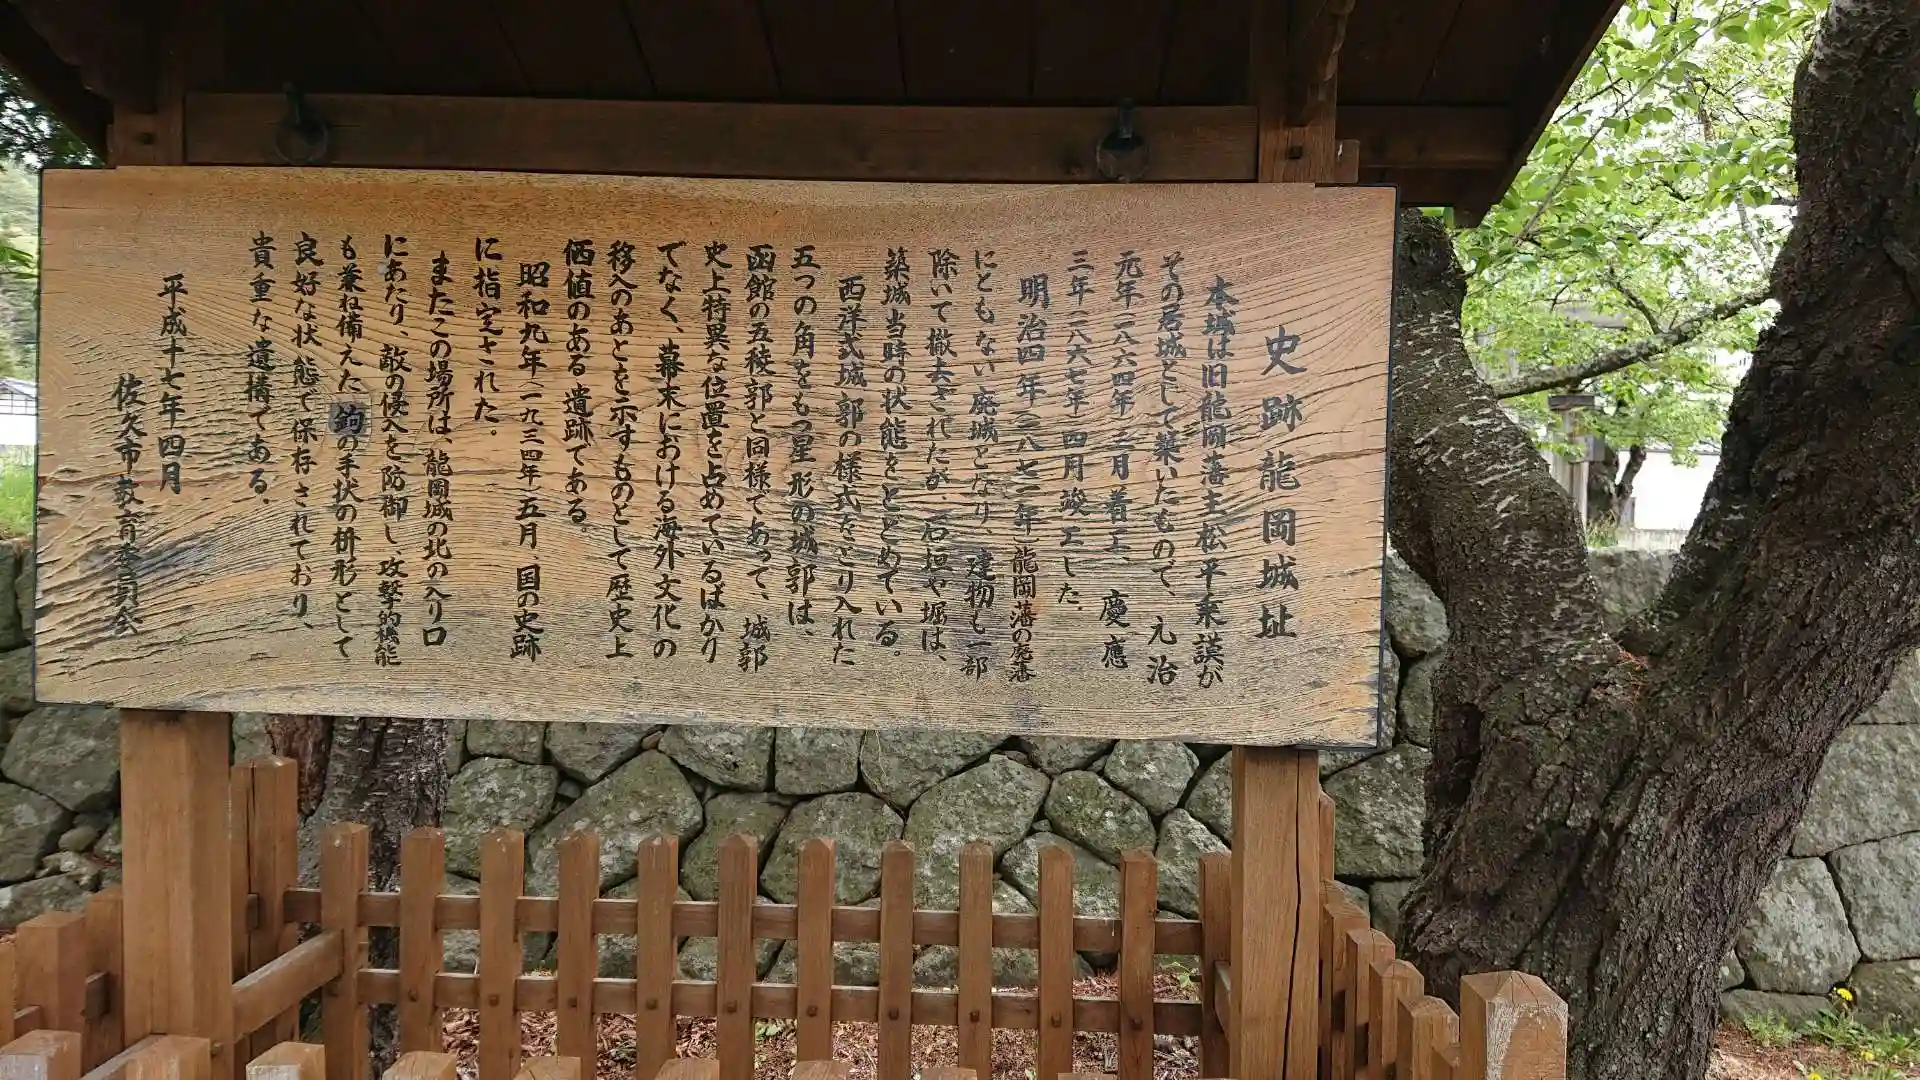 史跡龍岡城址
本城は旧龍岡藩主松平乗謨が
その居城として築いたもので、元治
元年(一八六四年)三月着工、慶應
三年(一八六七年)四月竣工した。
明治四年(一八七一年)龍岡藩の廃藩
にともない廃城となり、建物も一部
除いて撤去されたが、石垣や堀は、
築城当時の状態をとどめている。
西洋式城郭の様式をとり入れた
五つの角をもつ星形の城郭は、
函館の五稜郭と同様であって、城郭
史上特異な位置を占めているばかり
でなく、幕末における海外文化の
移入のあとを示すものとして歴史上
価値のある遺跡である。
昭和九年(一九三四年)五月、国の史跡
に指定された。
またこの場所は、龍岡城の北の入り口
にあたり、敵の侵入を防御し、攻撃的機能
も兼ね備えた鉤の手状の枡形として
良好な状態で保存されており、
貴重な遺構である。
平成十七年四月
佐久市教育委員会